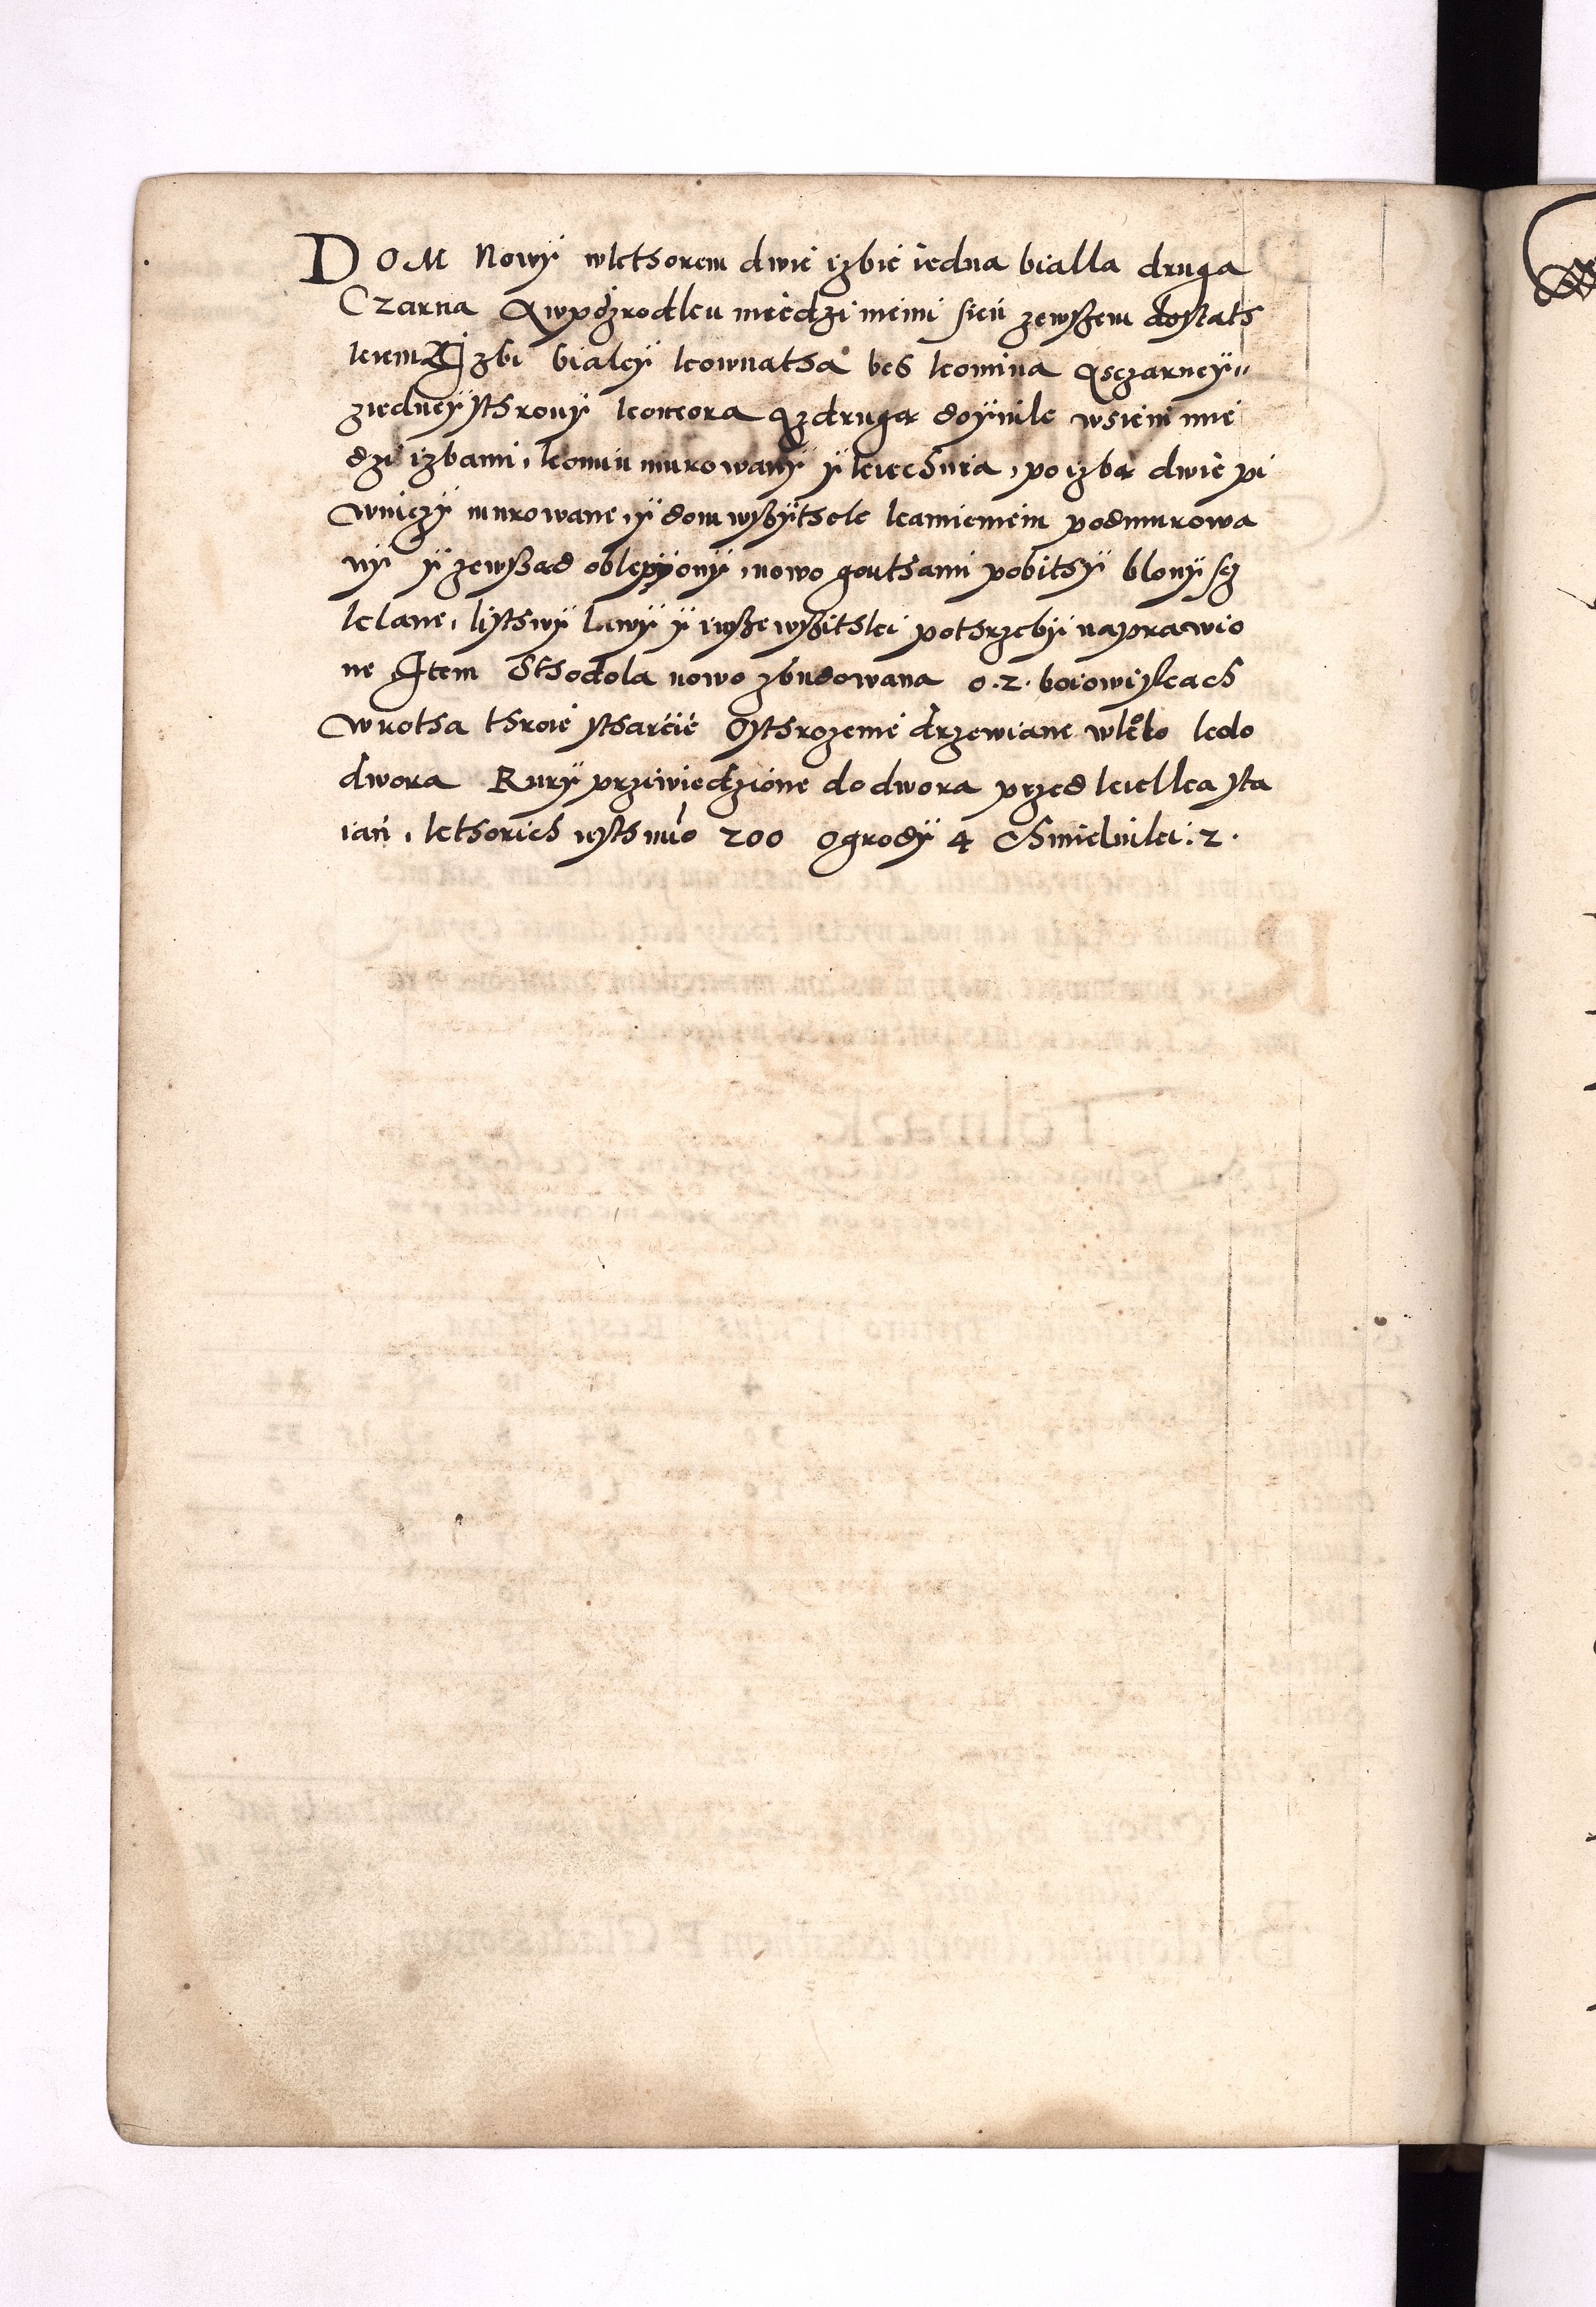 DOM Nowÿ wkthorem dwie izbie iedna bialla druga
Czarna A wpożrodku miedzi niemi sień zewßem dostath
kiem Z Izbi bialeÿ kownatha bes komina A sczarneÿ
ziedneÿ sthronÿ komora A zdruga doÿnik wsieni mie
dzi izbami, komin murowanÿ ÿ kuchnia, po izba dwie pi
wniczÿ murowane, ÿ dom wßÿthek kamieniem podmurowa
nÿ ÿ zewßad oblepÿonÿ, nowo gonthami pobithÿ blonÿ sz
klane, listhwÿ lawÿ ÿ wße wßithki pothrzebÿ naprawio
ne Item Sthodola nowo zbudowana o.2. boiowiskach
Wrotha throie stharcie Osthrozenie drzewiane wkolo kdo
dwora Rurÿ przewiedzione do dwora przed kielka sta
iań, kthorich iesth 200 Ogrodÿ 4 Chmielniki .2.